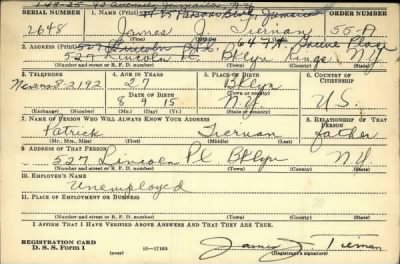 148-25 90 Avenue Jamaica N.Y.
SERIAL NUMBER 1. NAME (Print) ORDER NUMBER
2648 James J Tiernan 55-A
(First) (Middle) (Last)
2. ADDRESS (Print)
527 Lincoln Pl. Bklyn Kings N.Y.
(Number and street or R. F. D. number) (Town) (County) (State)
3. TELEPHONE 4. AGE IN YEARS 5. PLACE OF BIRTH 6. COUNTRY OF CITIZENSHIP
8-2192 27 Bklyn
DATE OF BIRTH
8 9 15 N.Y. U.S.
(Exchange) (Number) (Mo.) (Day) (Yr.) (State or country)
7. NAME OF PERSON WHO WILL ALWAYS KNOW YOUR ADDRESS 8. RELATIONSHIP OF THAT PERSON
Patrick Tiernan father
(Mr., Mrs., Miss) (First) (Middle) (Last)
9. ADDRESS OF THAT PERSON
527 Lincoln Pl Bklyn N.Y.
(Number and street or R. F. D. number) (Town) (County) (State)
10. EMPLOYER'S NAME
Unemployed
11. PLACE OF EMPLOYMENT OR BUSINESS
(Number and street or R. F. D. number) (Town) (County) (State)
I AFFIRM THAT I HAVE VERIFIED ABOVE ANSWERS AND THAT THEY ARE TRUE.
REGISTRATION CARD
D. S. S. Form 1 (over) 16-17105 James J. Tiernan
(Registrant's signature)